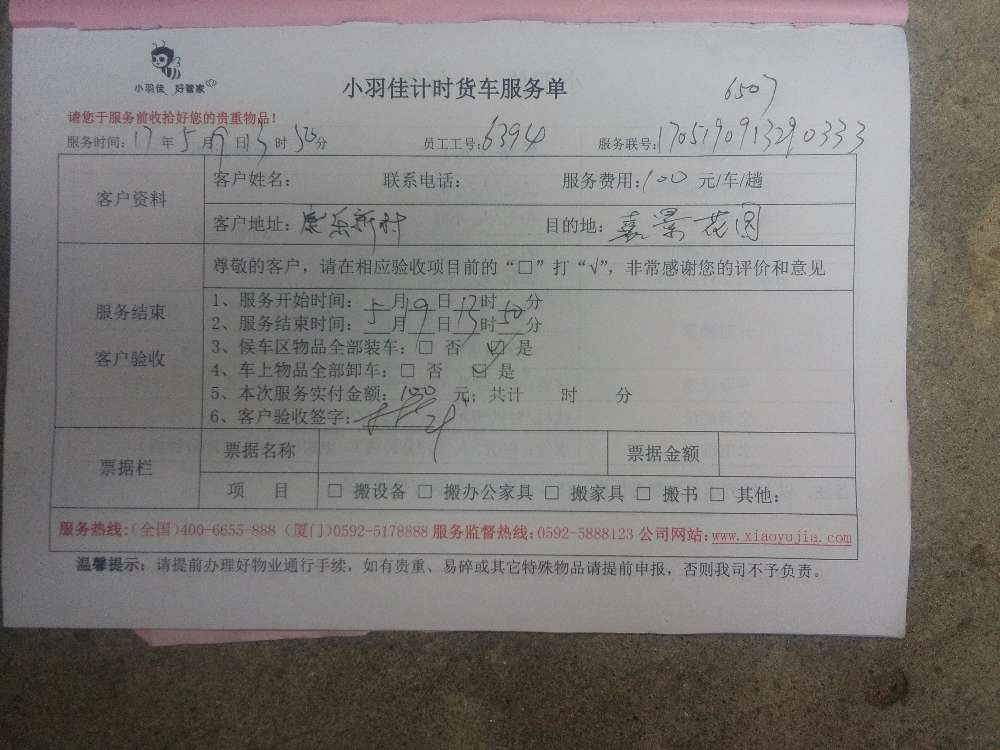 小羽佳 好管家
小羽佳计时货车服务单
6507
请您于服务前收拾好您的贵重物品!
服务时间:17年5月19日13时50分 员工工号:6394 服务联号:1705190913290333
客户资料
客户姓名: 联系电话: 服务费用:100 元/车/趟
客户地址:康乐新村 目的地:嘉景花园
服务结束
客户验收
尊敬的客户,请在相应验收项目前的“□”打“√”,非常感谢您的评价和意见
1、服务开始时间: 月 日 时 分
2、服务结束时间:5月19日13时50分
3、候车区物品全部装车:□ 否 ☑ 是
4、车上物品全部卸车:□ 否 ☑ 是
5、本次服务实付金额:100 元;共计 时 分
6、客户验收签字:
票据栏
票据名称 票据金额
项 目 □ 搬设备 □ 搬办公家具 □ 搬家具 □ 搬书 □ 其他:
服务热线:(全国)400-6655-888 (厦门)0592-5178888 服务监督热线:0592-5888123 公司网站:www.xiaoyujia.com
温馨提示:请提前办理好物业通行手续,如有贵重、易碎或其它特殊物品请提前申报,否则我司不予负责。